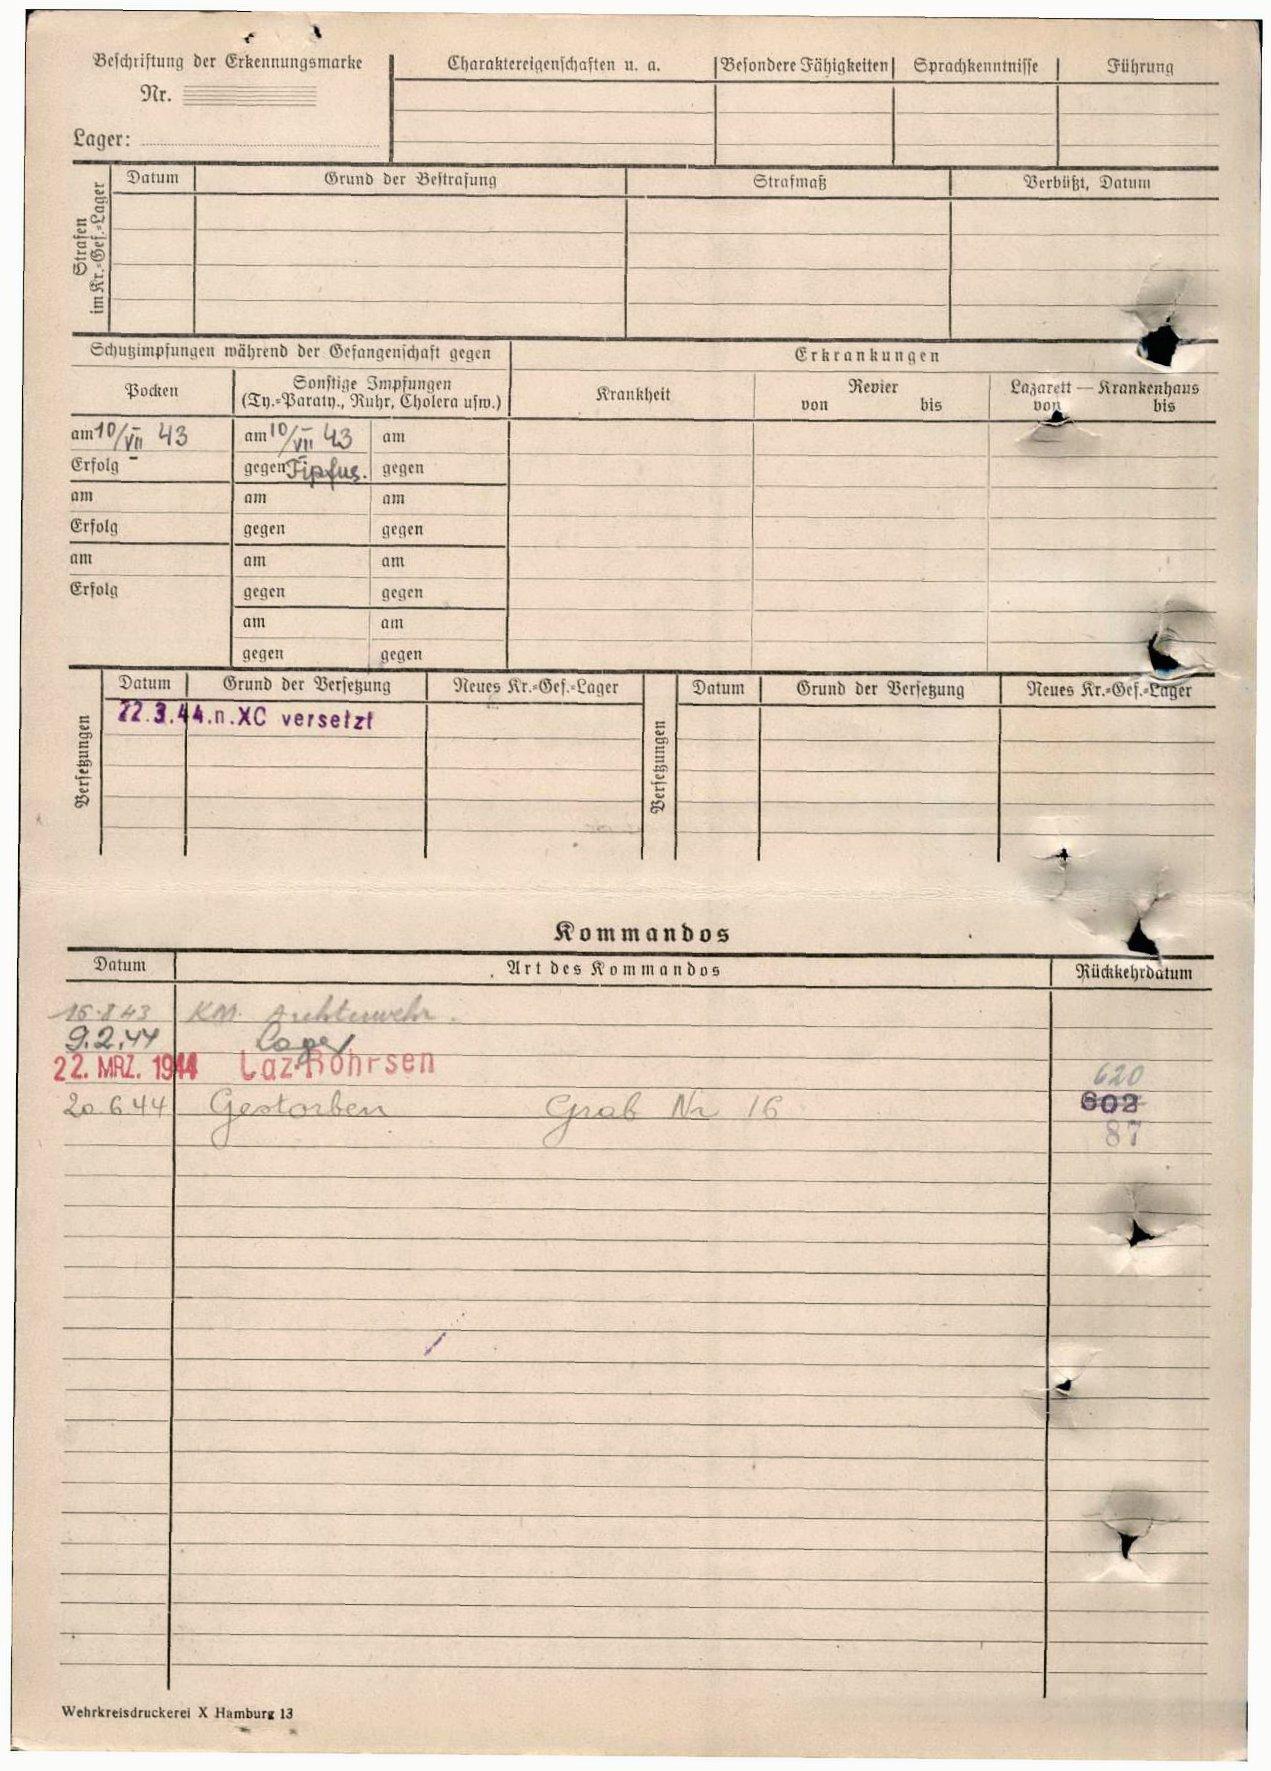 Beschriftung der Erkennungsmarke
Nr.
Lager:
Charaktereigenschaften u. a.
Besondere Fähigkeiten
Sprachkenntnisse
Führung
Strafen im Kr.=Gef.=Lager
Datum
Grund der Bestrafung
Strafmaß
Verbüßt, Datum
Schutzimpfungen während der Gefangenschaft gegen
Erkrankungen
Pocken
Sonstige Impfungen
(Ty.=Paraty., Ruhr, Cholera usw.)
Krankheit
Revier
von bis
Lazarett — Krankenhaus
von bis
am 10/VII 43 am 10/VII 43 am
Erfolg - gegen Tipfus. gegen
am am am
Erfolg gegen gegen
am am am
Erfolg gegen gegen
am am
gegen gegen
Versetzungen
Datum Grund der Versetzung Neues Kr.=Gef.=Lager
22.3.44.n.XC versetzt
Versetzungen
Datum Grund der Versetzung Neues Kr.=Gef.=Lager
Kommandos
Datum Art des Kommandos Rückkehrdatum
16.8.43 KM. Achterwehr.
9.2.44 Lager
22. MRZ. 1944 Laz. Rohrsen
620
20 6 44 Gestorben Grab Nr 16 602
87
Wehrkreisdruckerei X Hamburg 13